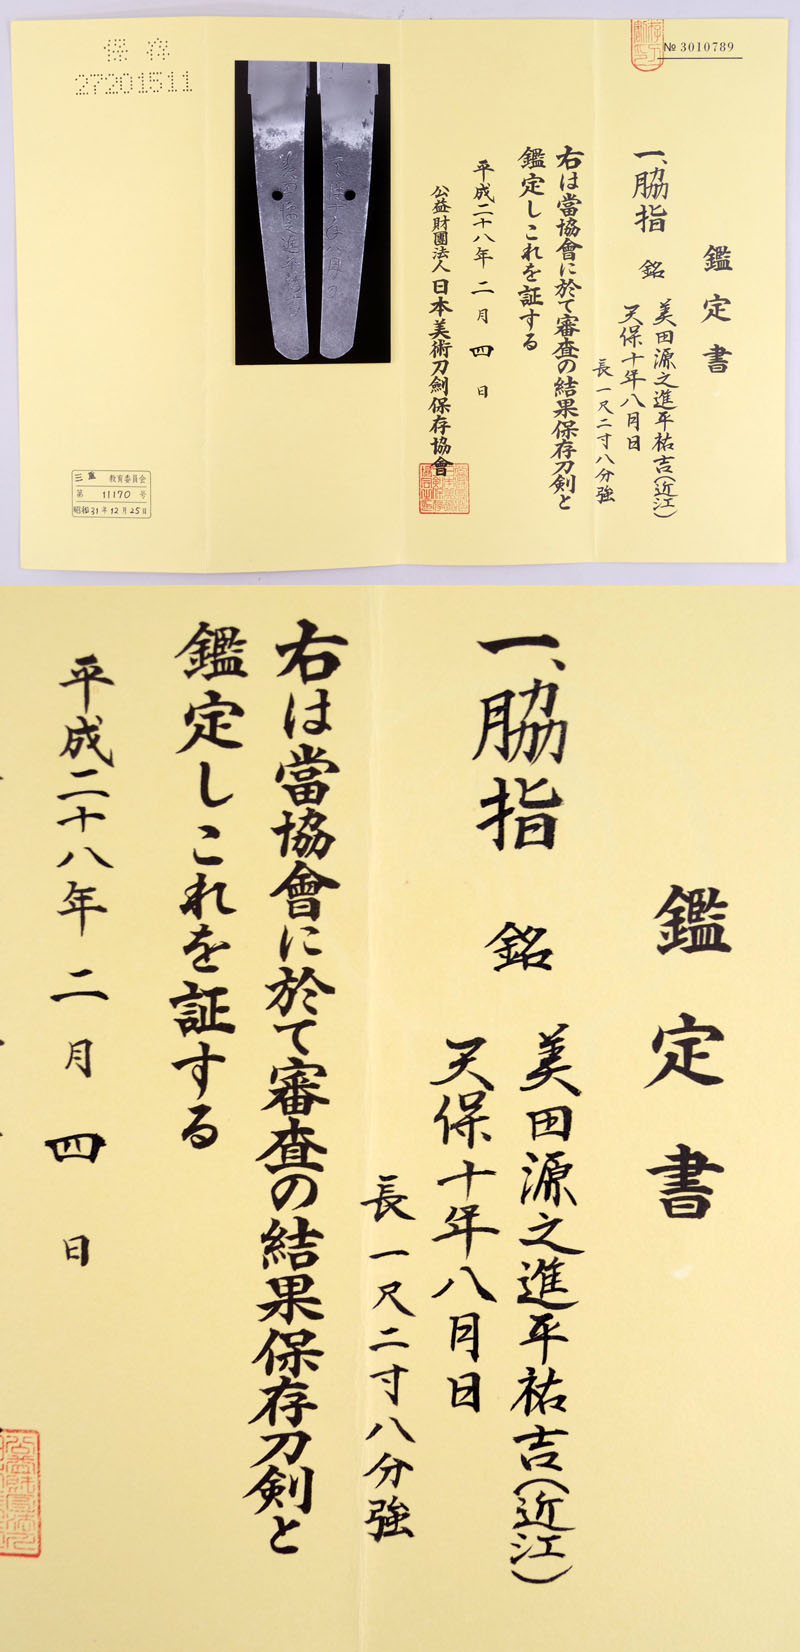 鑑定書
一、脇指 銘 美田源之進平祐吉(近江)
天保十年八月日
長一尺二寸八分強
右は當協會に於て審査の結果保存刀剣と
鑑定しこれを証する
平成二十八年二月四日
公益財團法人日本美術刀劍保存協會
№ 3010789
保存
27201511
三重 教育委員会
第 11170 号
昭和31年12月25日
鑑定書
一、脇指 銘 美田源之進平祐吉(近江)
天保十年八月日
長一尺二寸八分強
右は當協會に於て審査の結果保存刀剣と
鑑定しこれを証する
平成二十八年二月四日